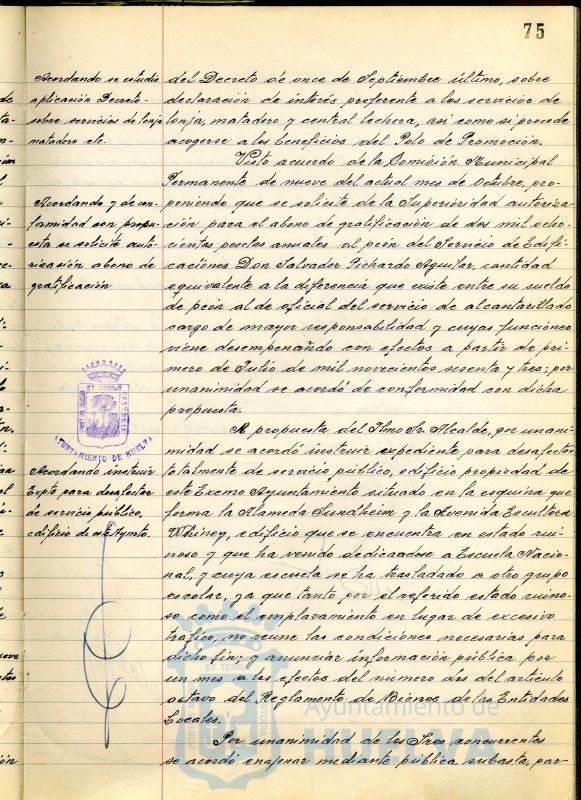 75
Acordando se estudie
aplicación Decreto
sobre servicios de lonja
matadero etc.
del Decreto de once de Septiembre último, sobre
declaración de interés preferente a los servicios de
lonja, matadero y central lechera, así como si procede
acogerse a los beneficios del Polo de Promoción.
Visto acuerdo de la Comisión Municipal
Permanente de nueve del actual mes de Octubre, pro-
Acordando y de con-
formidad con propu-
esta se solicite auto-
rización abono de
gratificación
poniendo que se solicite de la Superioridad autoriza-
ción para el abono de gratificación de dos mil ocho-
cientas pesetas anuales al peón del Servicio de Edifi-
caciones Don Salvador Pichardo Aguilar, cantidad
equivalente a la diferencia que existe entre su sueldo
de peón al de oficial del servicio de alcantarillado
cargo de mayor responsabilidad y cuyas funciones
viene desempeñando con efectos a partir de pri-
mero de Julio de mil novecientos sesenta y tres; por
unanimidad se acordó de conformidad con dicha
propuesta.
AYUNTAMIENTO DE HUELVA
A propuesta del Ilmo Sr. Alcalde, por unani-
midad se acordó instruir expediente para desafectar
Acordando instruir
Expte para desafectar
de servicio público,
edificio de este Aymto.
totalmente de servicio público, edificio propiedad de
este Excmo Ayuntamiento situado en la esquina que
forma la Alameda Sundheim y la Avenida Escultora
Whiney, edificio que se encuentra en estado rui-
noso y que ha venido dedicandose a Escuela Nacio-
nal, y cuya escuela se ha trasladado a otro grupo
escolar, ya que tanto por el referido estado ruino-
so como el emplazamiento en lugar de excesivo
tráfico, no reune las condiciones necesarias para
dicho fin; y anunciar información pública por
un mes a los efectos del número dos del artículo
octavo del Reglamento de Bienes de las Entidades
Locales.
Por unanimidad de los Sres concurrentes
se acordó enajenar mediante pública subasta, par-
Ayuntamiento de
HUELVA